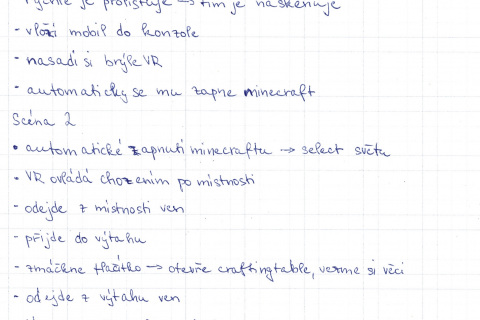 rychle je prolistuje → tím je naskenuje
- vloží mobil do konzole
- nasadí si brýle VR
- automaticky se mu zapne minecraft
Scéna 2
• automatické zapnutí minecraftu → select světa
• VR ovládá chozením po místnosti
- odejde z místnosti ven
- přijde do výtahu
- zmáčkne tlačítko → otevře craftingtable, vezme si věci
- odejde z výtahu ven